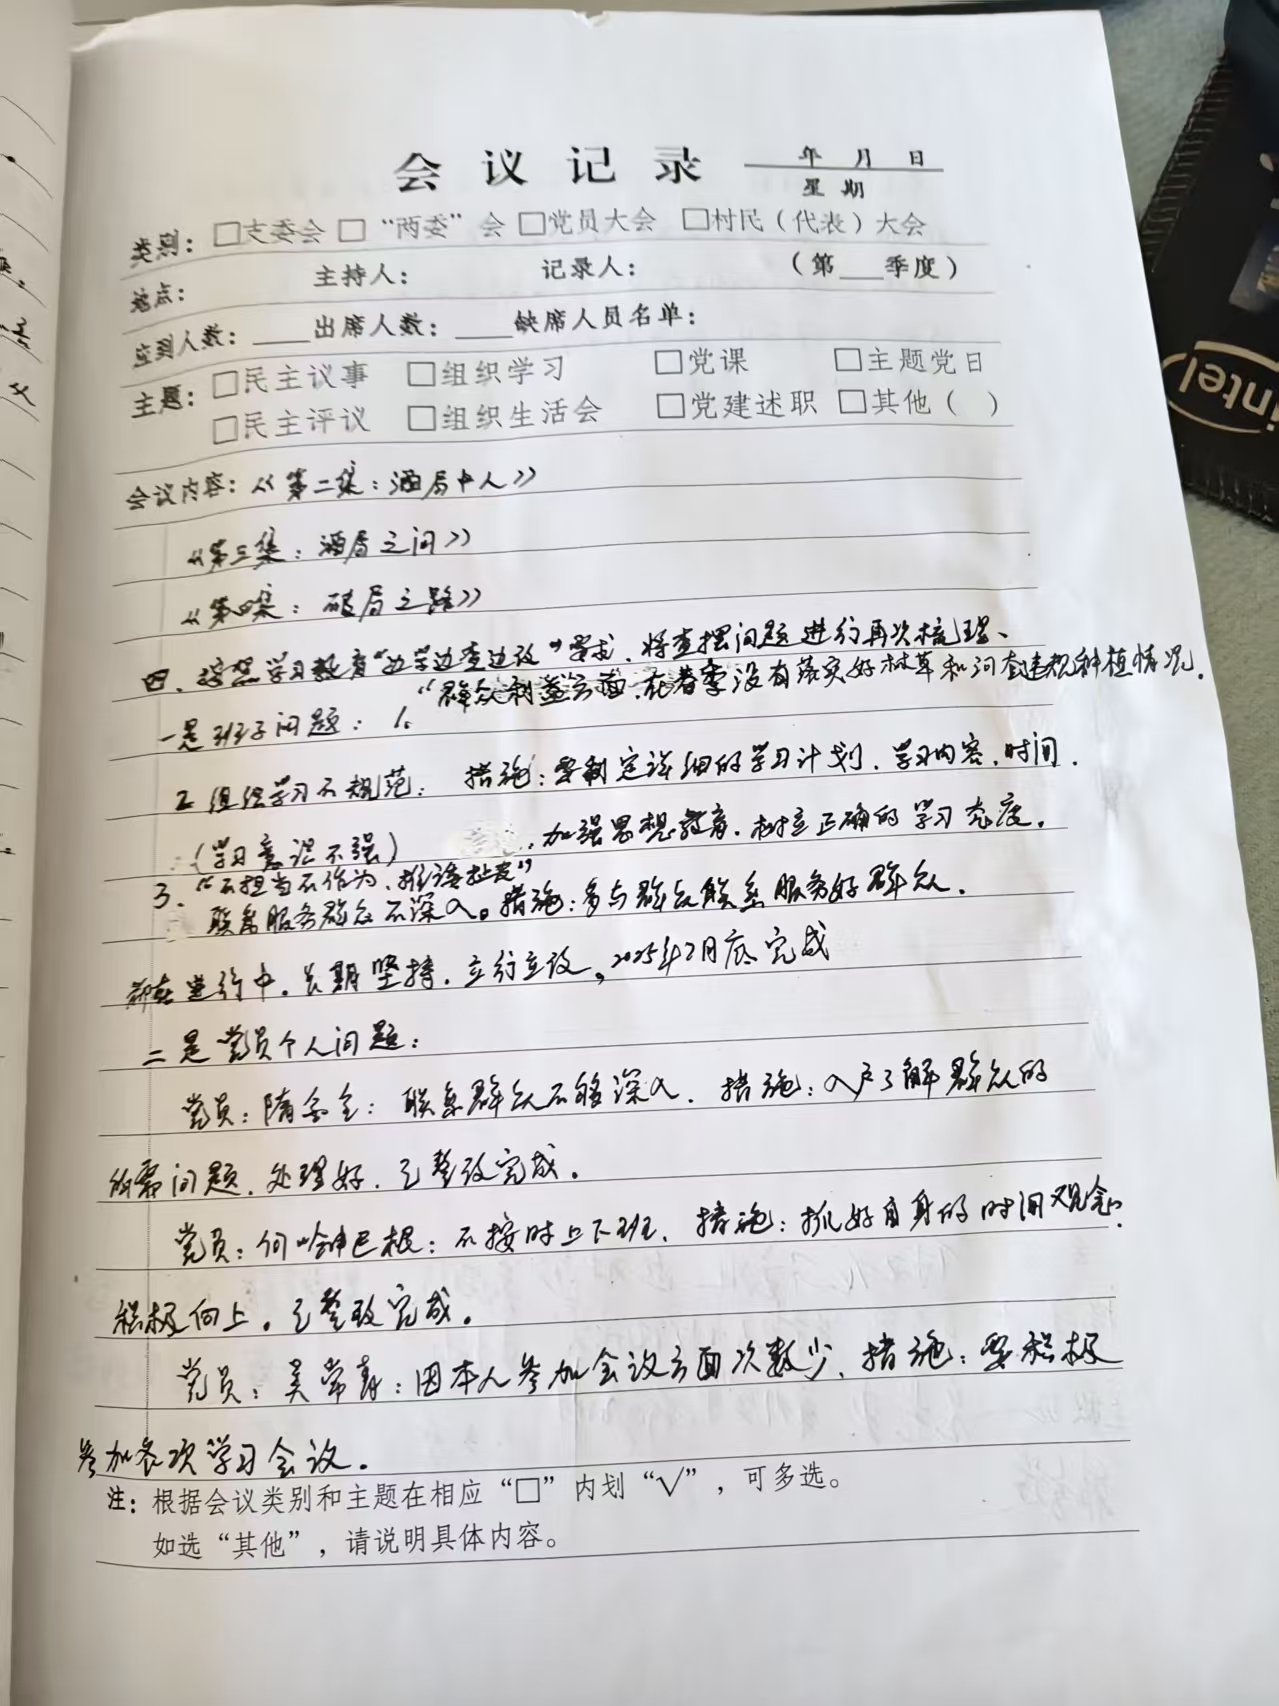 会议记录 年 月 日
星期
类别：□支委会 □“两委”会 □党员大会 □村民（代表）大会
地点： 主持人： 记录人： （第___季度）
应到人数：____出席人数：____缺席人员名单：
主题：□民主议事 □组织学习 □党课 □主题党日
□民主评议 □组织生活会 □党建述职 □其他（ ）
会议内容：《第二集：酒局中人》
《第三集：酒局之问》
《第四集：破局之路》
四、按照学习教育“边学边查边改”要求，将查摆问题进行再次梳理、
一是班子问题：1. “群众利益方面，在春季没有落实好林草和河套违规种植情况。
2 组织学习不规范； 措施：要制定详细的学习计划、学习内容、时间.
（学习意识不强） 加强思想教育、树立正确的学习态度.
3. “不担当不作为、推诿扯皮”
联系服务群众不深入。措施：多与群众联系服务好群众.
都在进行中. 长期坚持. 立行立改。2025年7月底完成
二是党员个人问题：
党员：隋 ： 联系群众不够深入. 措施：入户了解群众的
所需问题、处理好. 已整改完成.
党员：何 巴根：不按时上下班. 措施：抓好自身的时间观念.
积极向上. 已整改完成.
党员：吴常青：因本人参加会议方面次数少、措施：要积极
参加各次学习会议.
注：根据会议类别和主题在相应“□”内划“√”，可多选。
如选“其他”，请说明具体内容。
intel